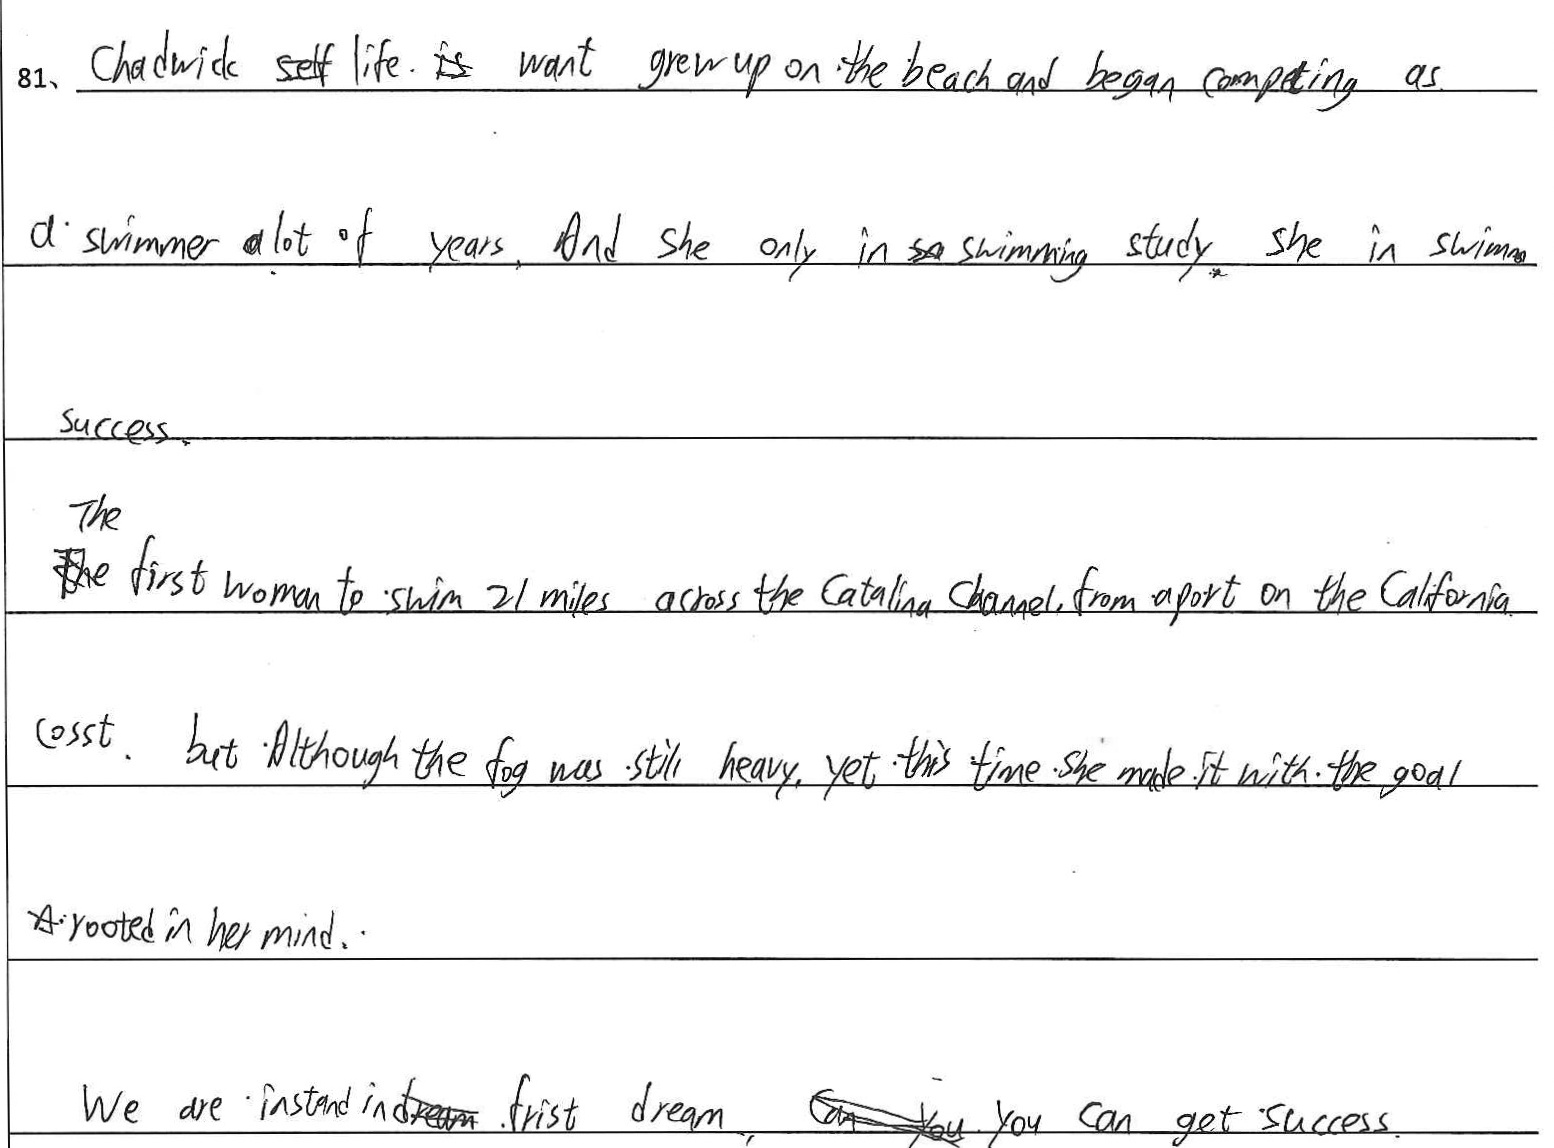 81、Chadwick life. want grew up on the beach and began competing as
a swimmer alot of years, And she only in swimming study she in swimm
success.
The
first woman to swim 21 miles across the Catalina Channel, from aport on the California
cosst. but Although the fog was still heavy, yet this time she made it with the goal
rooted in her mind.
We are instand in frist dream, you can get success.